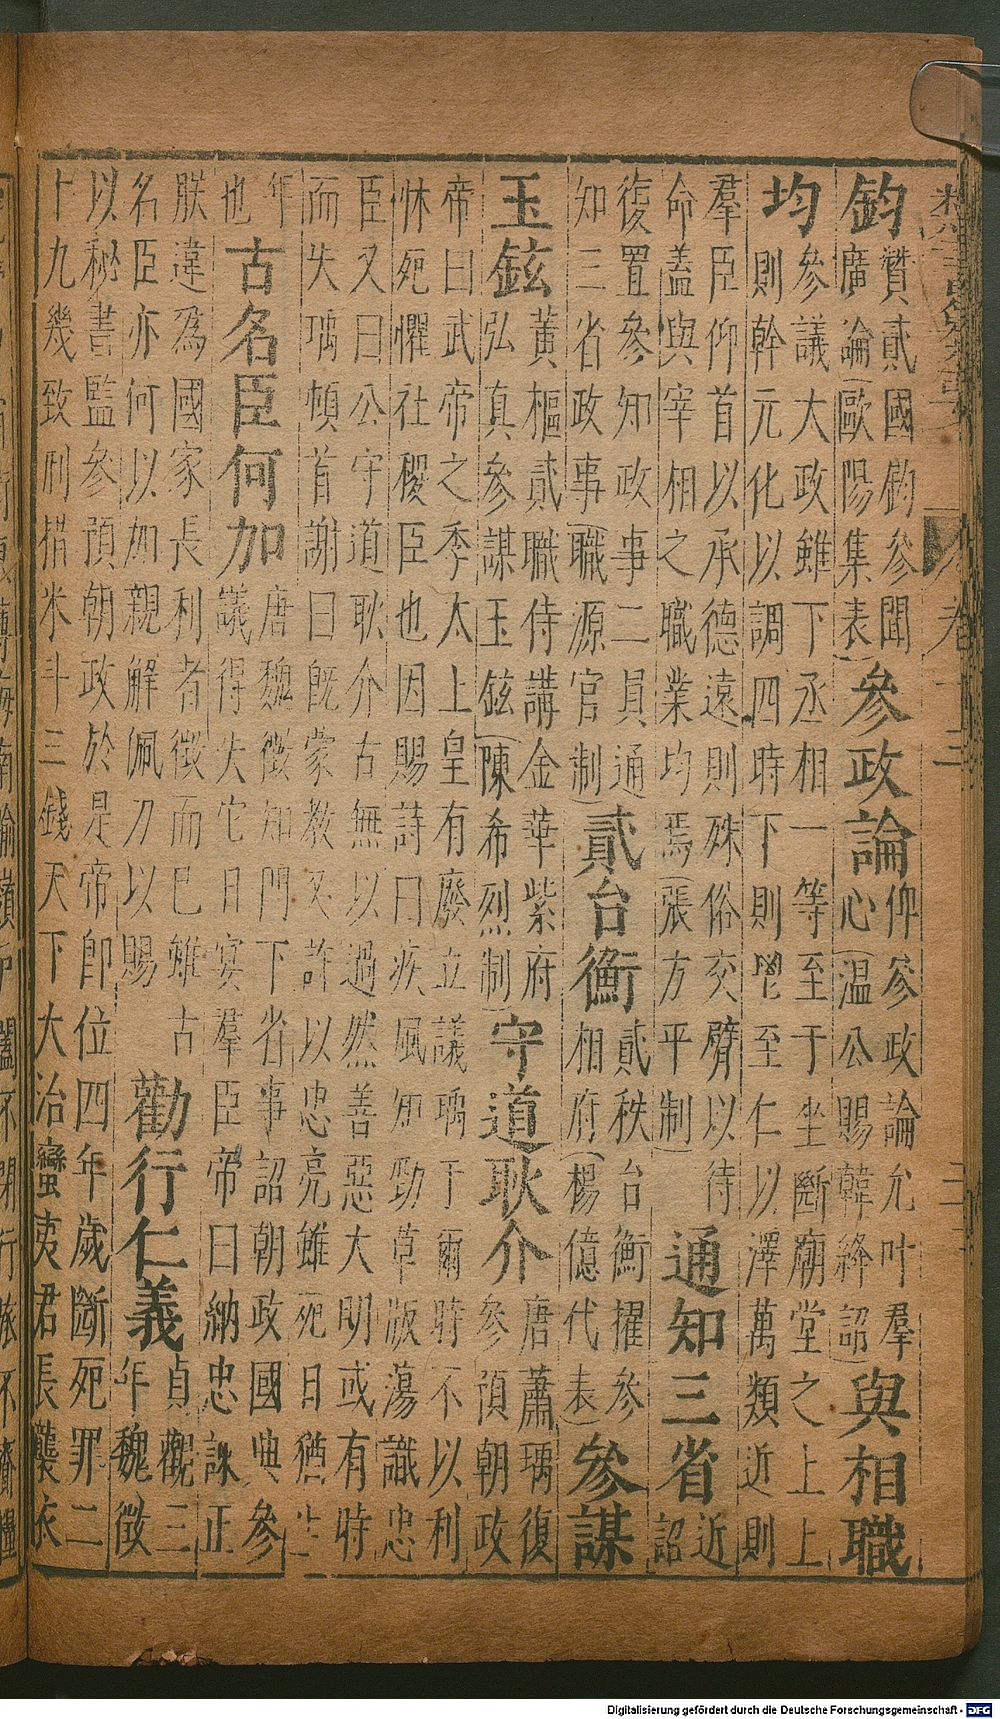 鈞
贊貳國鈞參聞
廣論(歐陽集表)
參政論
仰參政論允叶羣
心(温公賜韓絳詔)
與相職
均
參議大政雖下丞相一等至于坐斷廟堂之上上
則幹元化以調四時下則至仁以澤萬類近則
羣臣仰首以承德遠則殊俗交臂以待
命蓋與宰相之職業均焉(張方平制)
通知三省
近
詔
復置參知政事二員通
知三省政事(職源官制)
貳台衡
貳秩台衡擢參
相府(楊億代表)
參謀
玉鉉
黃樞貳職侍講金華紫府
弘真參謀玉鉉(陳希烈制)
守道耿介
唐蕭瑀復
參預朝政
帝曰武帝之季太上皇有廢立議瑀于爾時不以利
怵死懼社稷臣也因賜詩曰疾風知勁草版蕩識忠
臣又曰公守道耿介古無以過然善惡大明或有時
而失瑀頓首謝曰既蒙教又許以忠亮雖死日猶生
年
也
古名臣何加
唐魏徵知門下省事詔朝政國典參
議得失它日宴羣臣帝曰納忠諫正
朕違爲國家長利者徵而已雖古
名臣亦何以加親解佩刀以賜
勸行仁義
貞觀三
年魏徵
以秘書監參預朝政於是帝即位四年歲斷死罪二
十九幾致刑措米斗三錢天下大治蠻夷君長襲衣
Digitalisierung gefördert durch die Deutsche Forschungsgemeinschaft - DFG